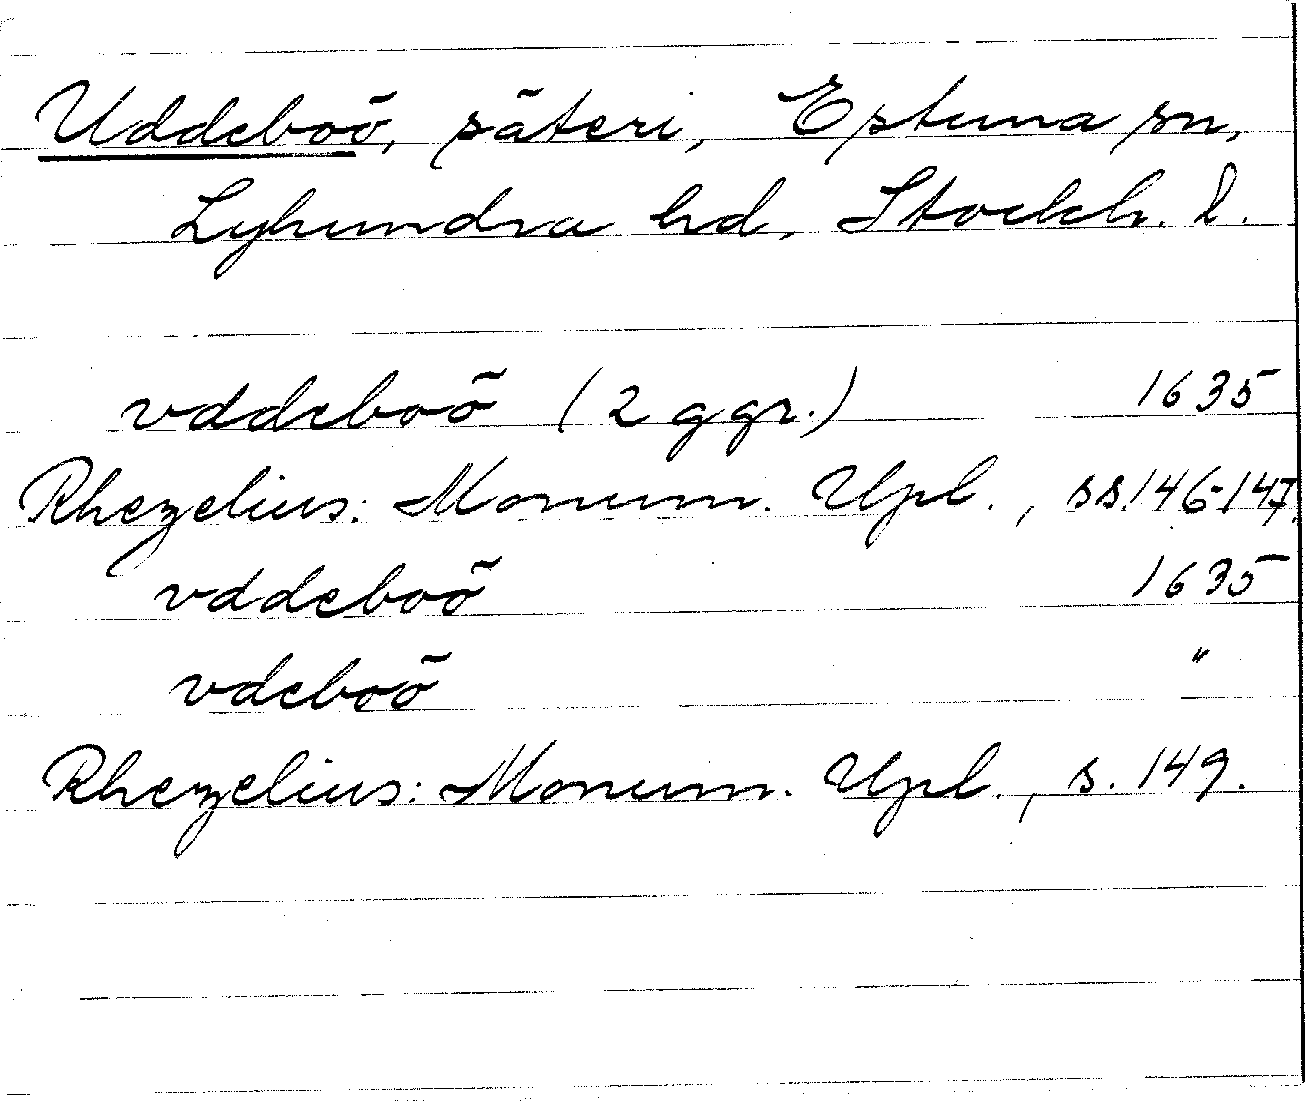 Uddeboö, säteri, Estuna sn,
Lyhundra hd, Stockh. l.
vddeboö (2 ggr.) 1635
Rhezelius: Monum. Upl., ss.146-147.
vddeboö 1635
vdeboö "
Rhezelius: Monum. Upl., s. 149.